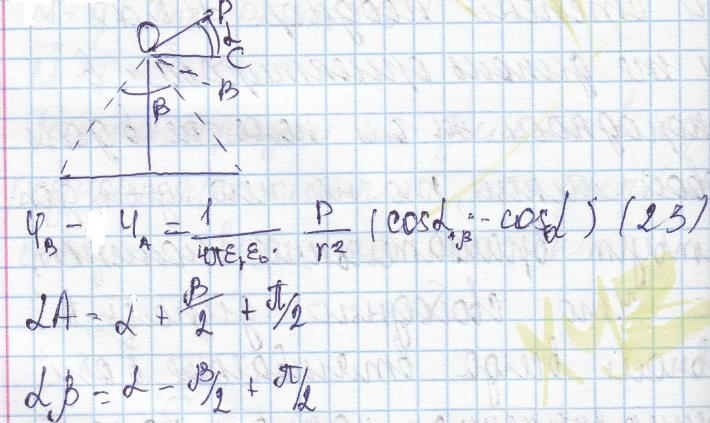 O
P
α
C
B
β
φ_B - φ_A = 1/(4πε₁ε₀) · P/r² (cosα_B - cosα) (23)
αA = α + β/2 + π/2
αβ = α - β/2 + π/2
xyz